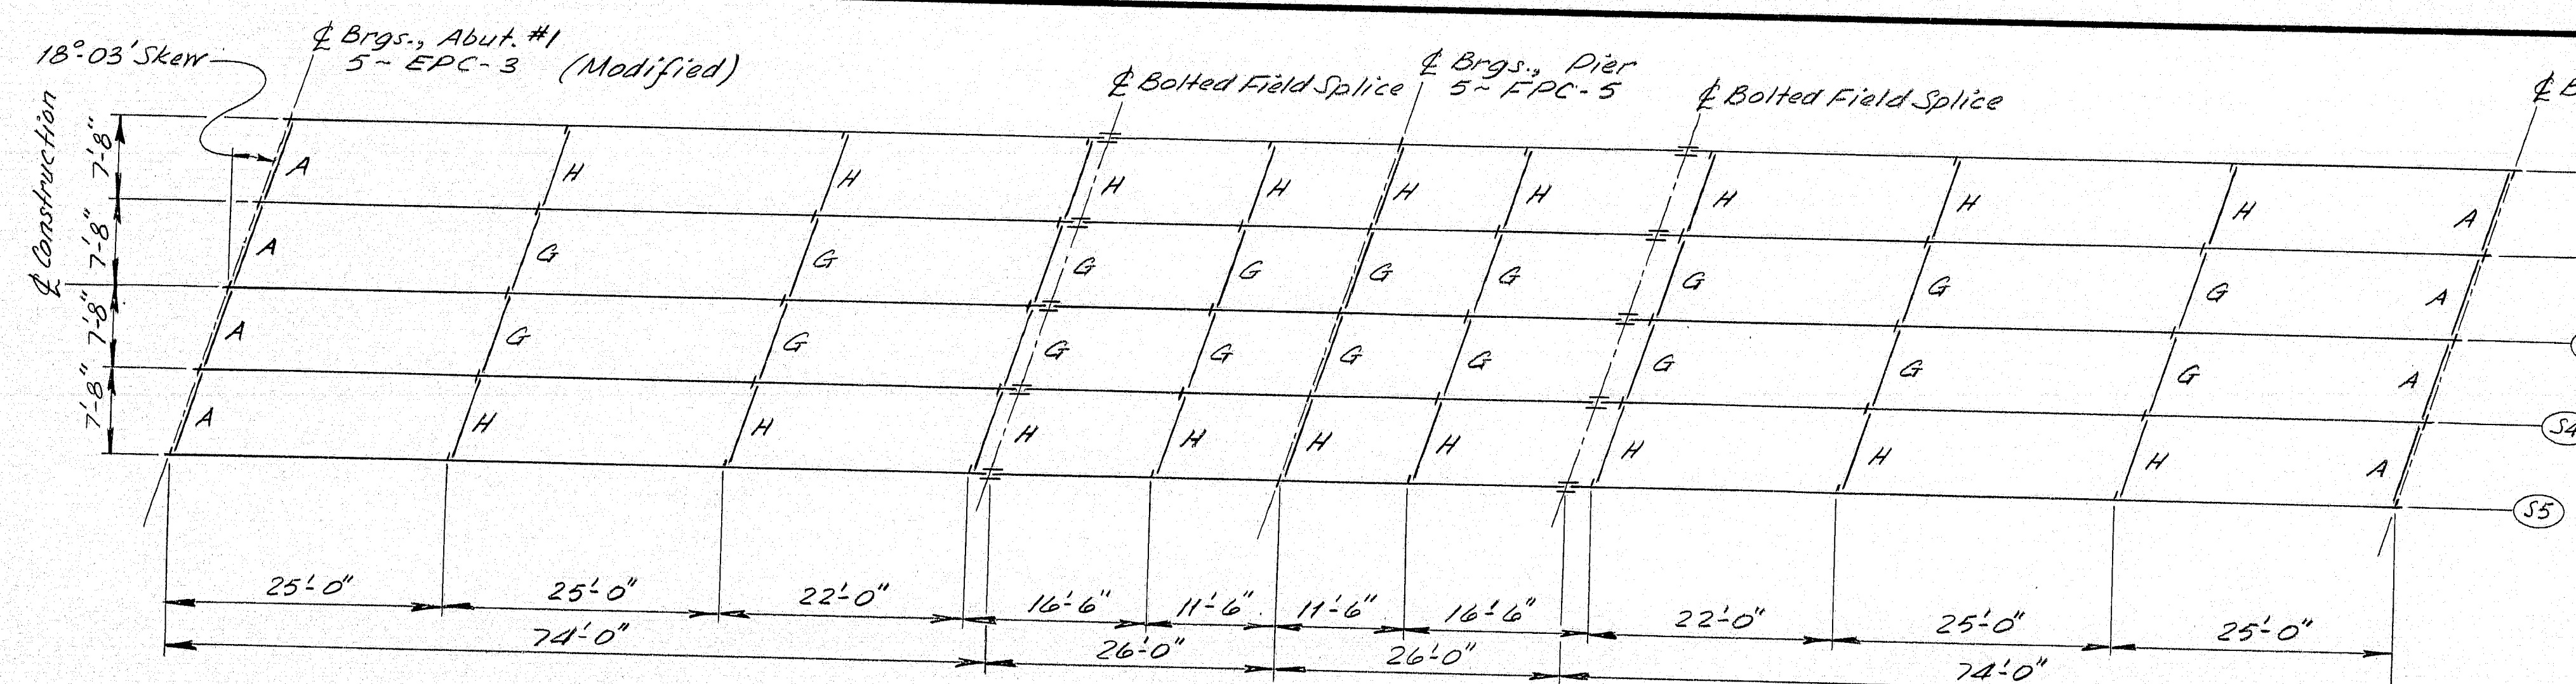 18°-03' Skew
℄ Brgs., Abut. #1
5~ EPC-3 (Modified)
℄ Bolted Field Splice
℄ Brgs., Pier
5~ FPC-5
℄ Bolted Field Splice
℄ B
℄ Construction
7'-8"
7'-8"
7'-8"
7'-8"
A H H H H H H H H H A
A G G G G G G G G G A
A G G G G G G G G G A
A H H H H H H H H H A
S4
S5
25'-0" 25'-0" 22'-0" 16'-6" 11'-6" 11'-6" 16'-6" 22'-0" 25'-0" 25'-0"
74'-0" 26'-0" 26'-0" 74'-0"